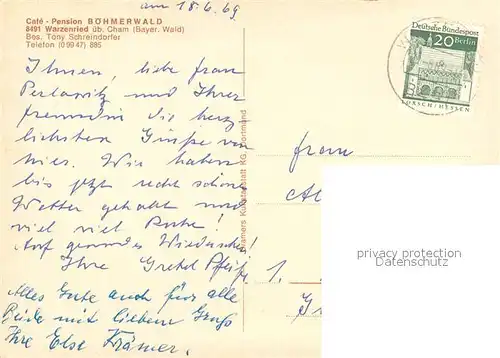 am 18.6.69
Café - Pension BÖHMERWALD
8491 Warzenried üb. Cham (Bayer. Wald)
Bes. Tony Schreindorfer
Telefon (09947) 885
Ihnen, liebe Frau
Perlawitz und Ihrer
Freundin die herz
lichsten Grüße von
hier. Wir haben
bis jetzt recht schönes
Wetter gehabt und
viel viel Ruhe!
Auf gesundes Wiedersehen!
Ihre Gretel
Alles Gute auch für alle
Beide mit liebem Gruß
Ihre Else Krämer.
Kramers Kunstanstalt KG, Dortmund
Deutsche Bundespost
20 Berlin
LORSCH/HESSEN
Frau
1.
privacy protection
Datenschutz